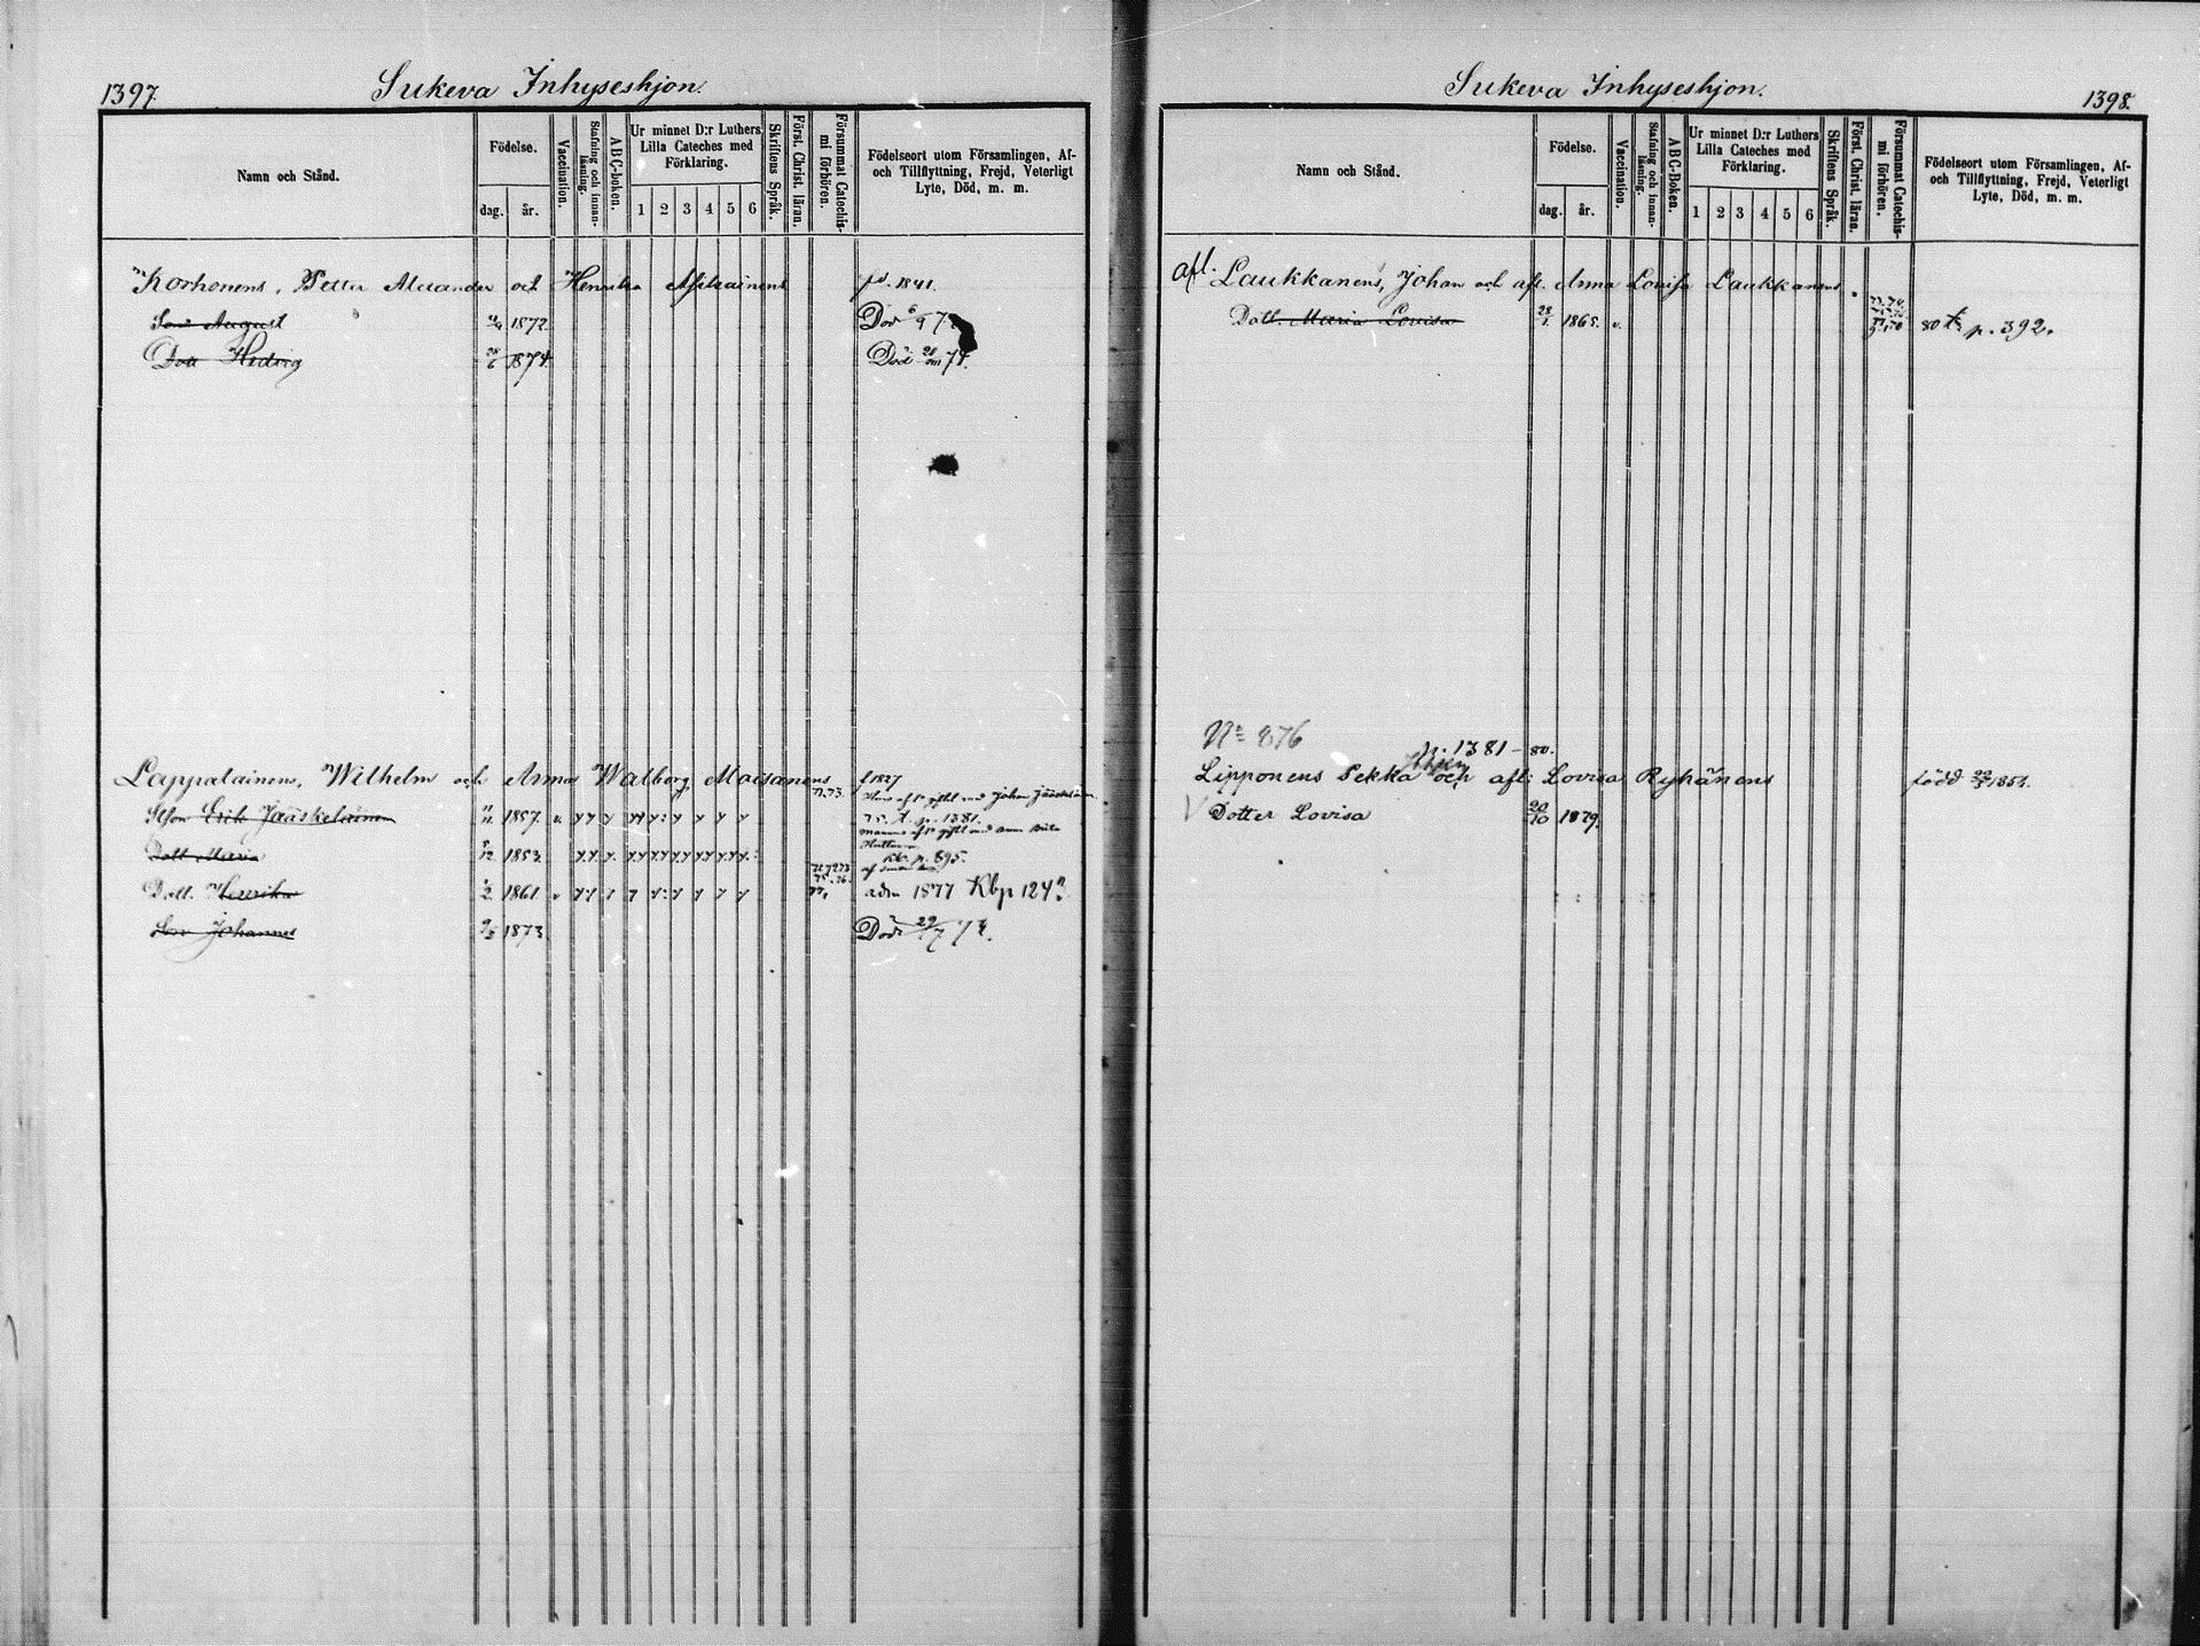 1397.
Sukeva Inhyseshjon.
Namn och Stånd.
Födelse.
dag.
år.
Vaccination.
Stafning och innanläsning.
ABC-boken.
Ur minnet D:r Luthers
Lilla Cateches med
Förklaring.
1 2 3 4 5 6
Skriftens Språk.
Först. Christ. läran.
Försummat Catechismi förhören.
Födelseort utom Församlingen, Af-
och Tillflyttning, Frejd, Veterligt
Lyte, Död, m. m.
Korhonens, Petter Alexander och Henrika
1841.
Son August 1872 Död 6/9
Dott Hedvig 1874. Död
Lappalainens, Wilhelm och Anna Walborg Moisanens f 1827
77.73.
gift med Johan Jääskeläinen
Sson Erik Jääskeläinen 11/11 1857. v. p. 1381.
Dott Maria 1853. p. 895.
Dott. Henrika 1/2 1861 v adm 1877 Kbp 124
Son Johannes 1873 Död 29/7 73.
Sukeva Inhyseshjon.
1398.
Namn och Stånd.
Födelse.
dag.
år.
Vaccination.
Stafning och innanläsning.
ABC-Boken.
Ur minnet D:r Luthers
Lilla Cateches med
Förklaring.
1 2 3 4 5 6
Skriftens Språk.
Först. Christ. läran.
Försummat Catechismi förhören.
Födelseort utom Församlingen, Af-
och Tillflyttning, Frejd, Veterligt
Lyte, Död, m. m.
afl. Laukkanens, Johan och afl. Anna Lovisa Laukkanens.
Dott. Maria Lovisa 28/1. 1865. v. 80 p. 392.
No 876
p. 1381 - 80.
Lipponens Pekka och afl: Lovisa Ryhänens född
Dotter Lovisa 20/10 1879.